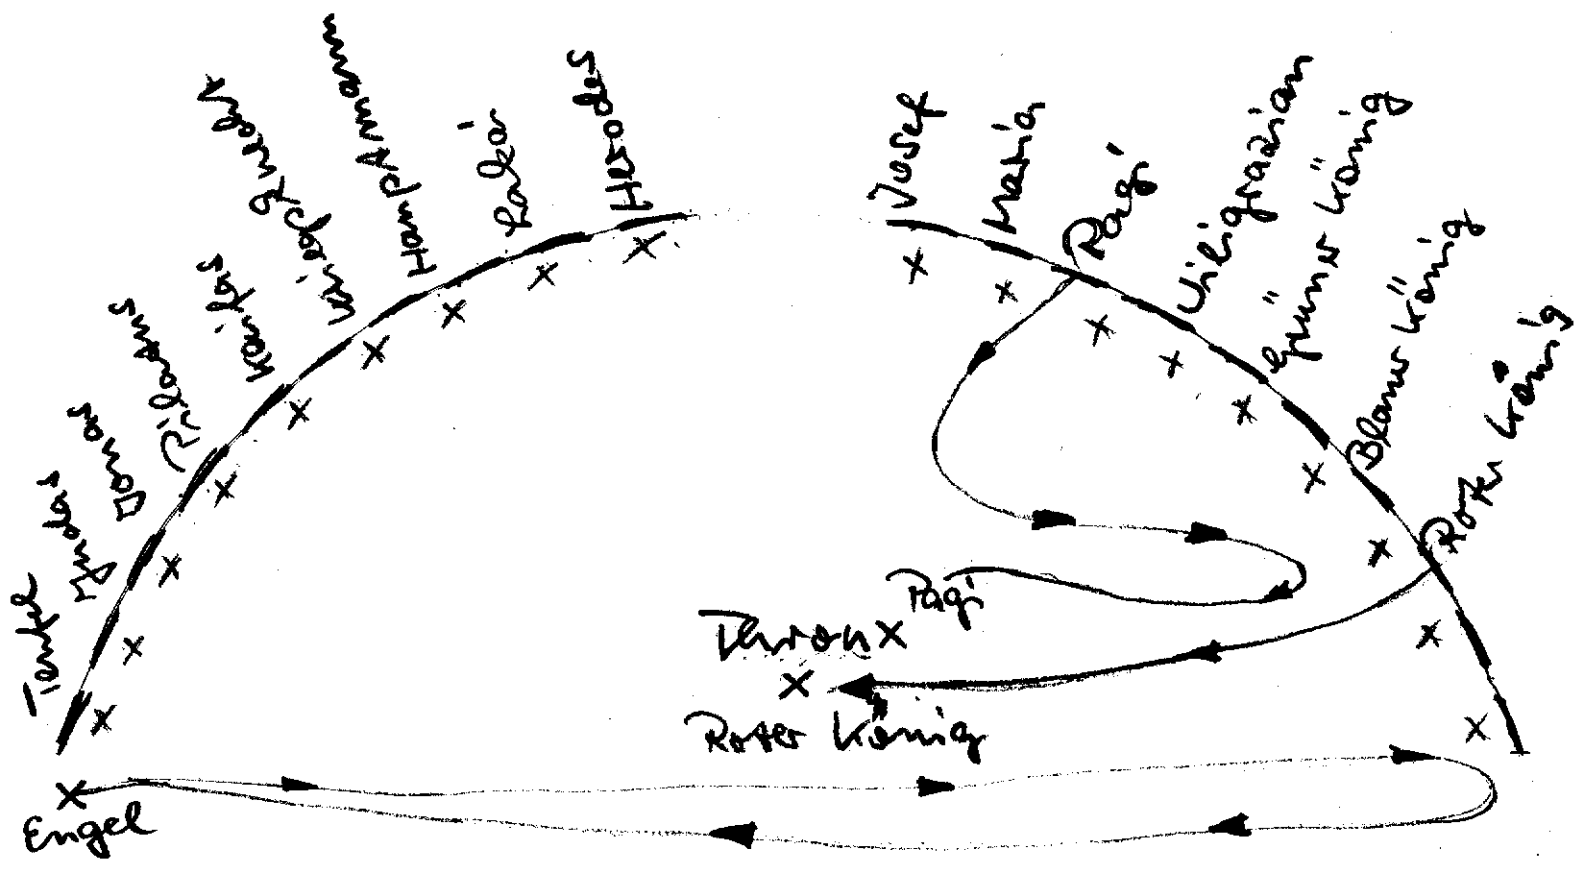 Teufel
Judas
Pilatus
Kaifas
Kriegsknecht
Hauptmann
Lakai
Herodes
Josef
Maria
Pagi
Viligrazian
Grüner König
Blauer König
Roter König
Pagi
Thron
Roter König
Engel